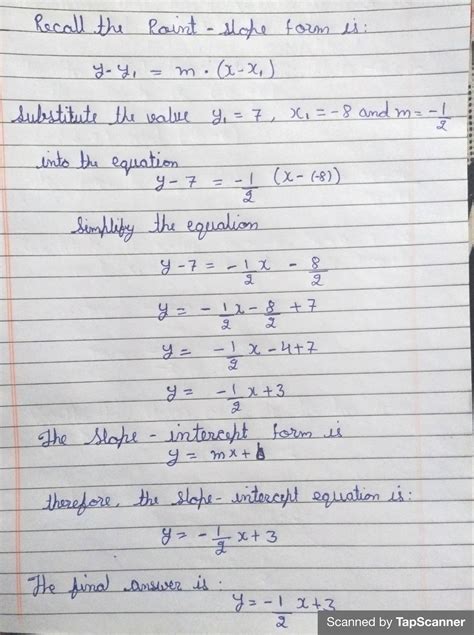 Recall the Point-slope form is:
y-y₁ = m·(x-x₁)
Substitute the value y₁=7, x₁=-8 and m=-1/2
into the equation
y-7 = -1/2 (x-(-8))
Simplify the equation
y-7 = -1/2x - 8/2
y = -1/2x - 8/2 + 7
y = -1/2x - 4+7
y = -1/2x+3
The slope-intercept form is
y = mx+b
therefore, the slope-intercept equation is:
y = -1/2x+3
The final answer is:
y = -1/2x+3
Scanned by TapScanner